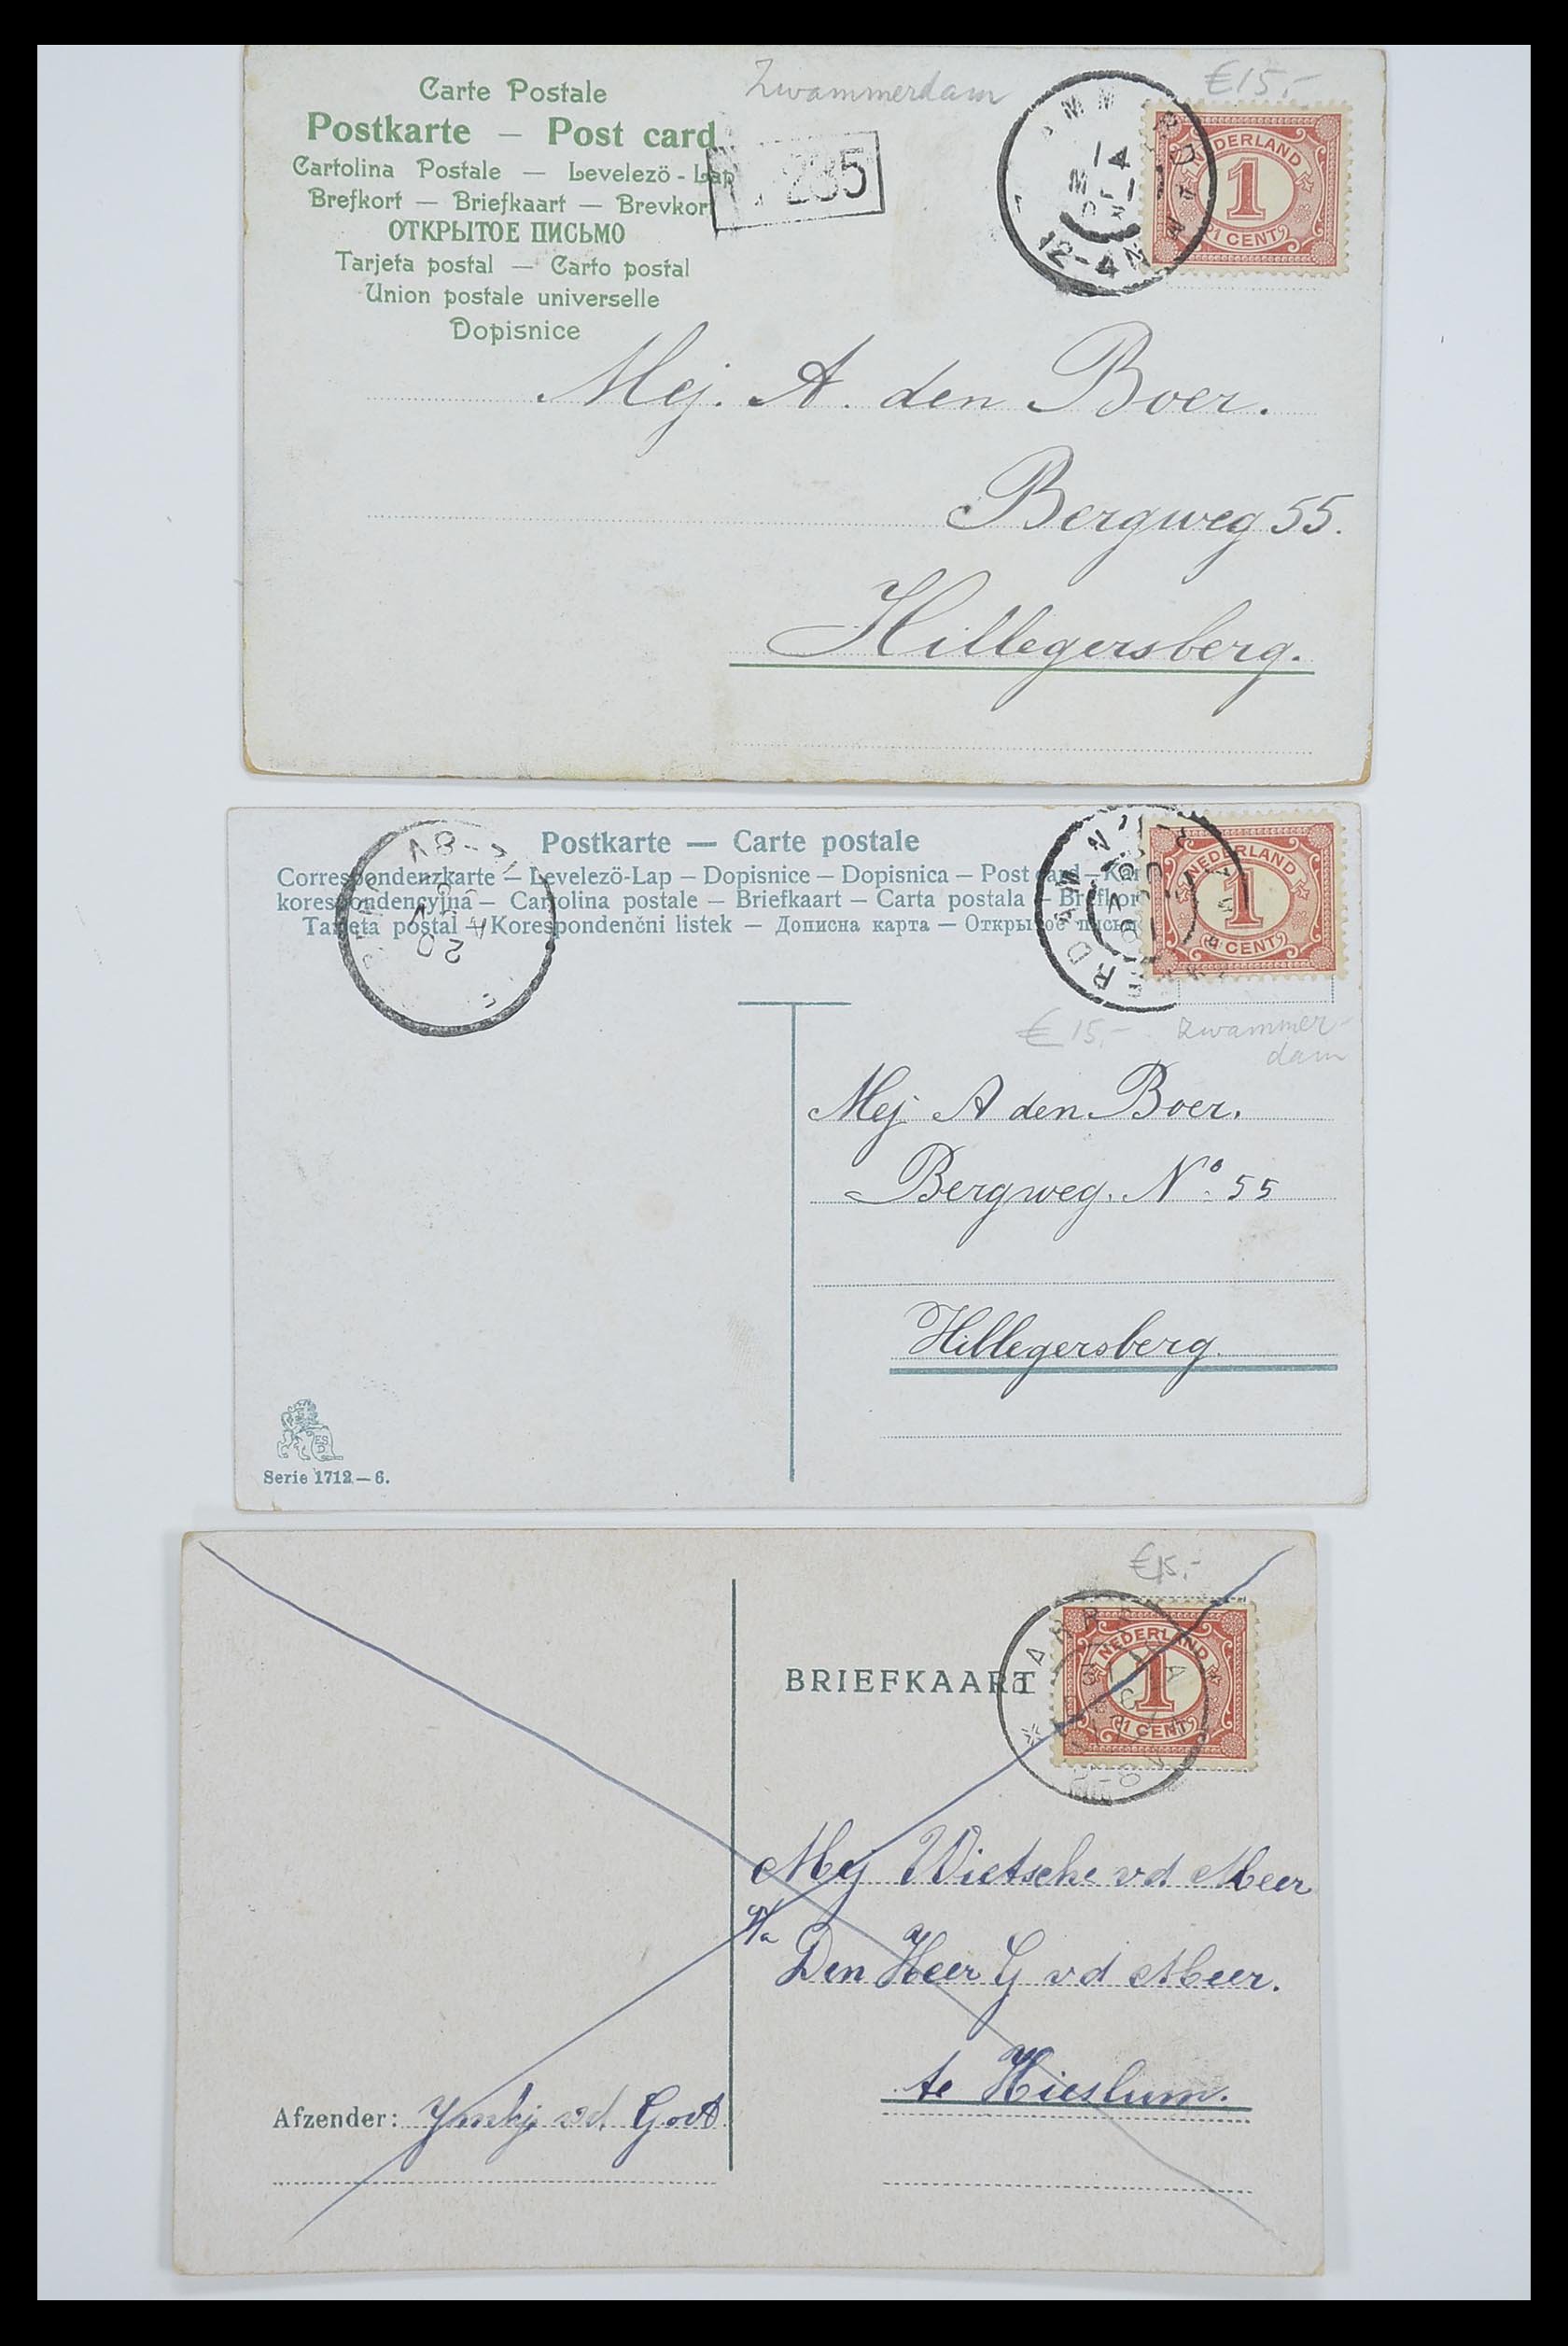 Zwammerdam
€15,-
Carte Postale
Postkarte — Post card
Cartolina Postale — Levelező - Lap
Brefkort — Briefkaart — Brevkort
ОТКРЫТОЕ ПИСЬМО
Tarjeta postal — Carto postal
Union postale universelle
Dopisnice
235
12-4N
NEDERLAND
1
1 CENT
Mej. A. den Boer.
Bergweg 55.
Hillegersberg.
Postkarte — Carte postale
Correspondenzkarte — Levelező-Lap — Dopisnice — Dopisnica — Post card —
korespondencyjna — Cartolina postale — Briefkaart — Carta postala —
Tarjeta postal — Korespondenční listek — Дописна карта — Открытое
NEDERLAND
1
1 CENT
€15,- Zwammer-
dam
Mej A den Boer.
Bergweg. No. 55
Hillegersberg.
Serie 1712 — 6.
€15,-
BRIEFKAART
NEDERLAND
1
1 CENT
Mej Wietsche vd Meer
p/a
Den Heer G vd Meer.
te Hieslum.
Afzender: